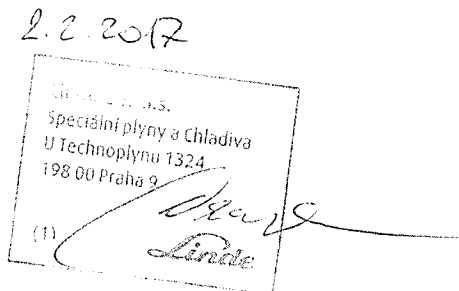 2.2.2017
a.s.
Speciální plyny a Chladiva
U Technoplynu 1324
198 00 Praha 9
(1)
Linde